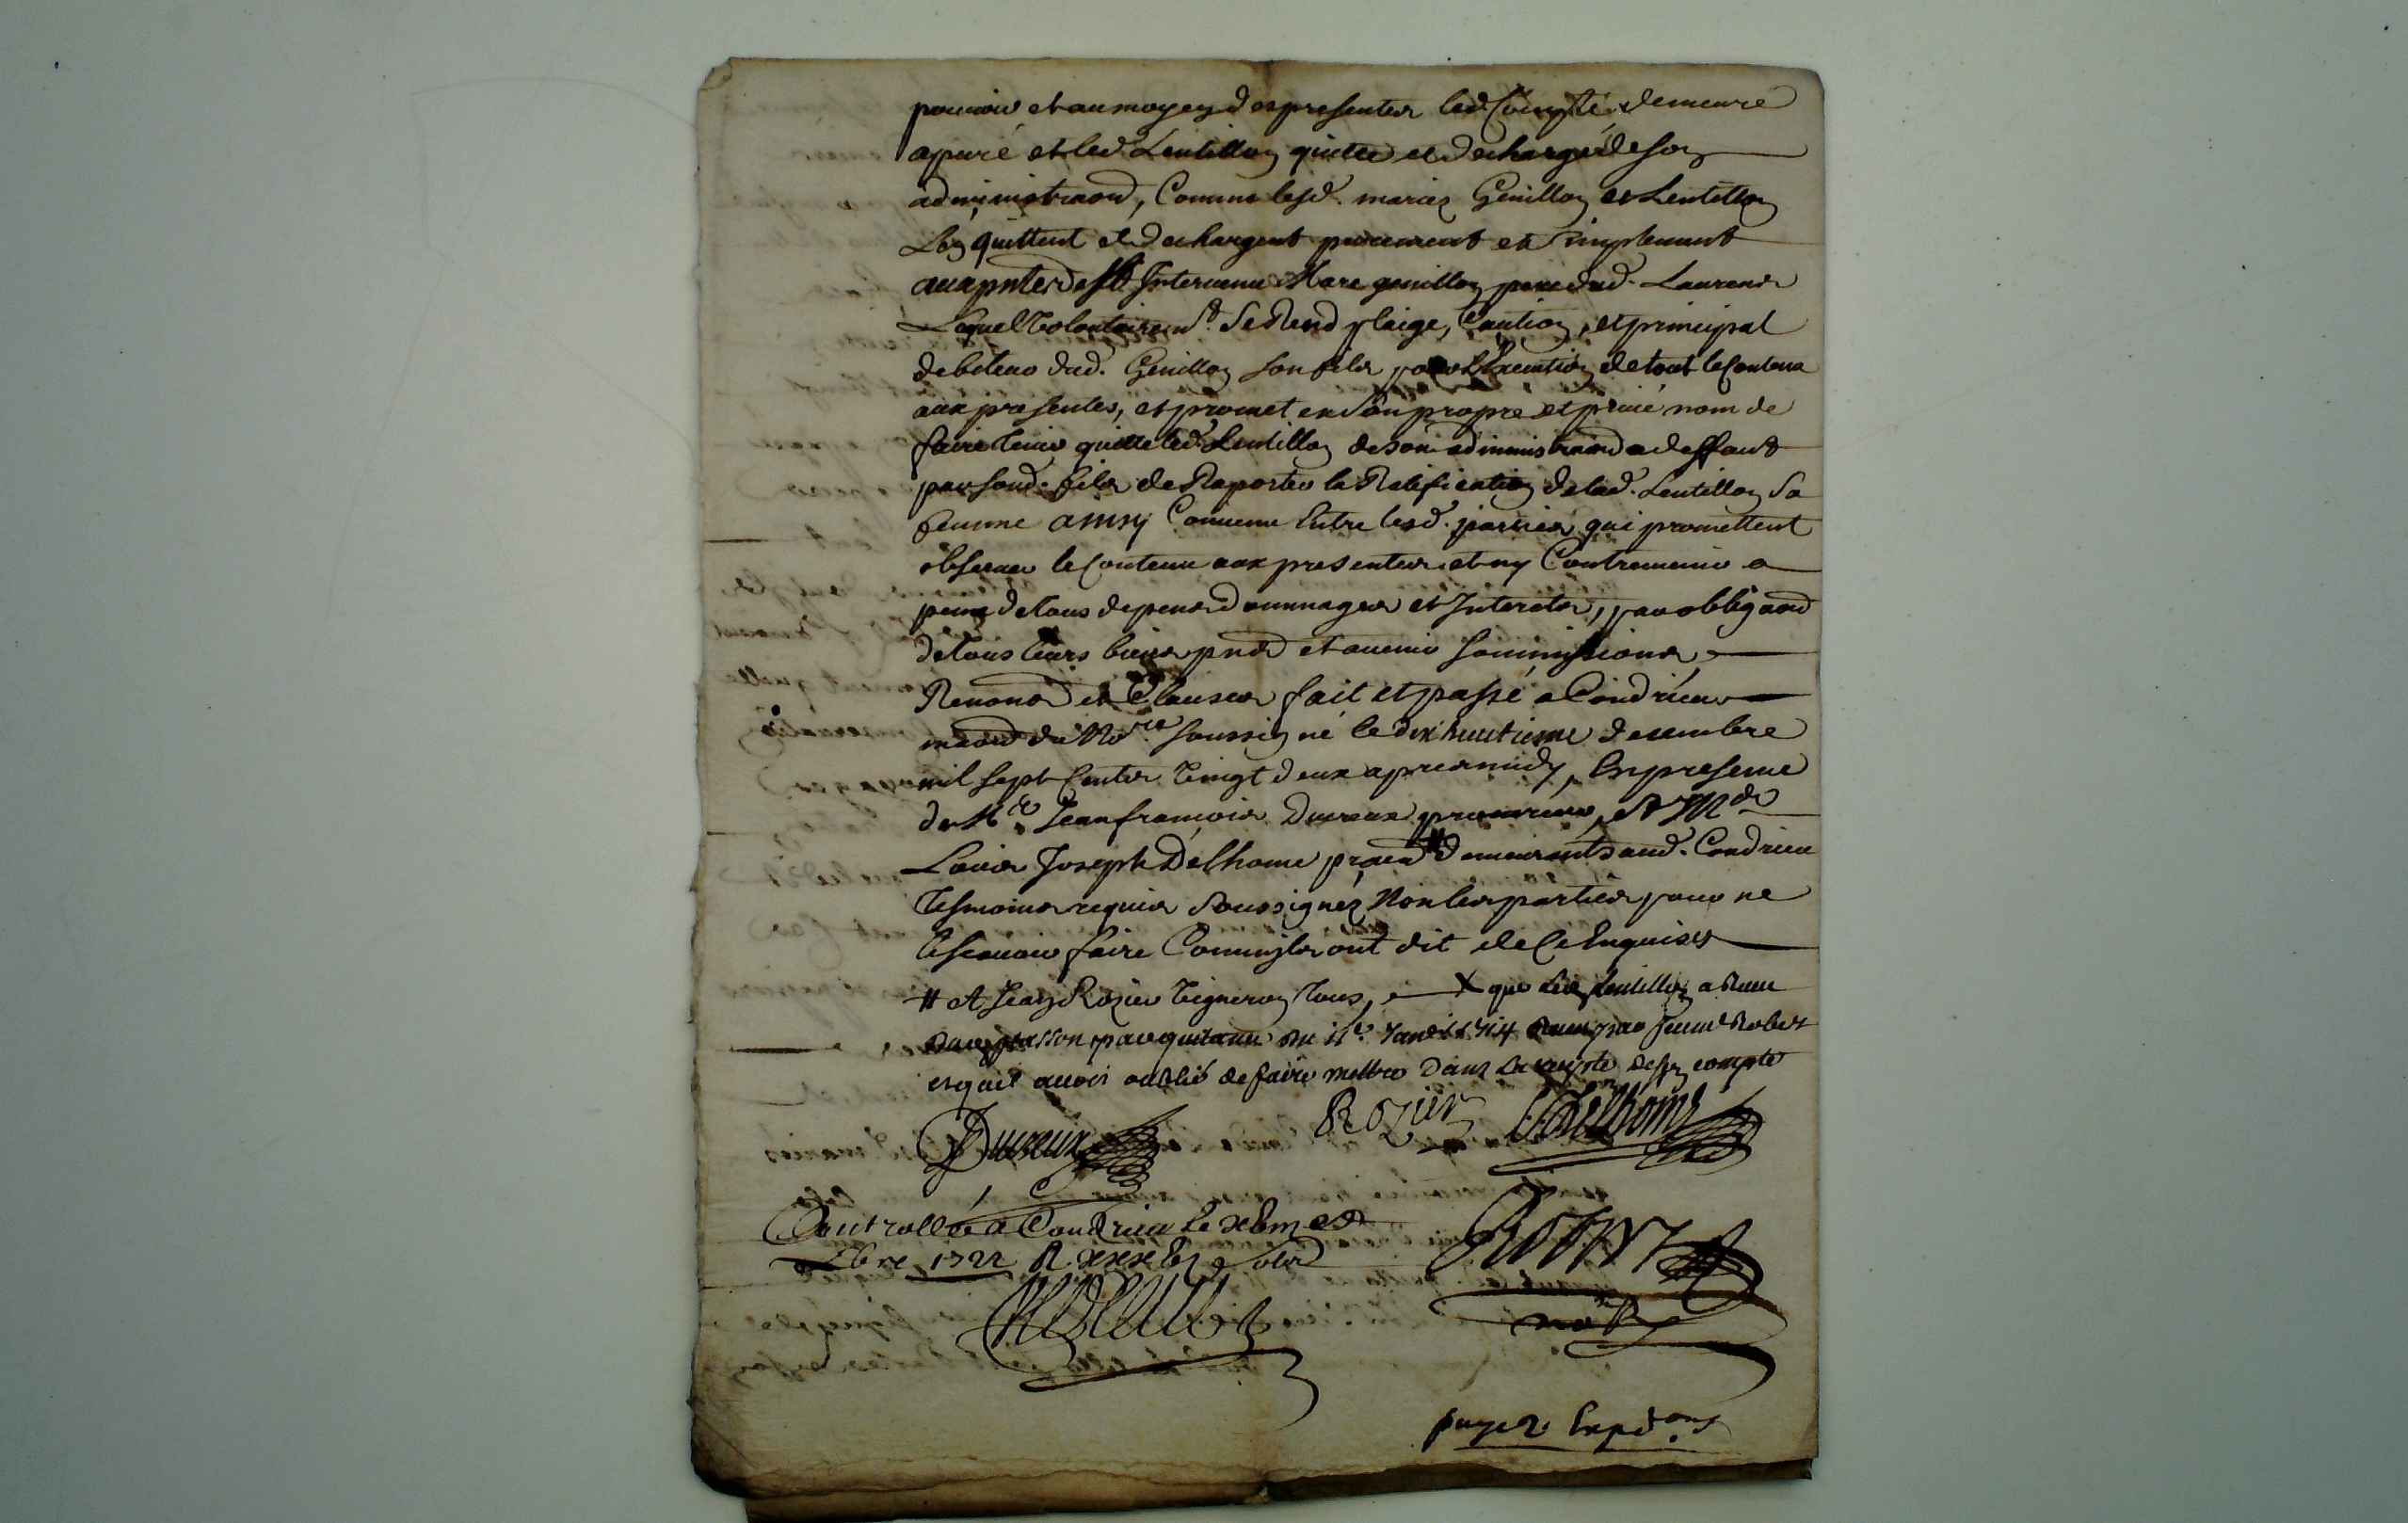 pouvoir et au moyen des presentes led. Compte demeure
apuré et led. Lentillon quitte et dechargé de son
administraon, Comme lesd. mariez Genillon et Lentillon
Len quittent et dechargent purement et simplement
aux pntes est Intervenu Marc genillon pere dud. Laurens
Lequel volontairemt. se Rend plaige, Caution, et principal
debiteur dud. Genillon son fils pour l'Execution de tout le Contenu
aux presentes, et promet en son propre et privé nom de
faire tenir quitte led. Lentillon de son administraon a deffaut
par sond. fils de Raporter la Ratification de lad. Lentillon sa
femme ainsy Convenu Entre lesd. parties qui promettent
observer le Contenu aux presentes et ny Contrevenir a
peine de tous depens dommages et Interets, par obligaon
de tous leurs biens pnts et avenir soumissions
Renons et Clauses fait et passé a Condrieu
maison du Nore soussigné le dix huitieme decembre
mil sept Cents vingt deux apres midy, En presence
de Me. Jean francois Ducreux procureur, et Me
Louis Joseph Delhome praen # demeurants aud. Condrieu
Tesmoins requis soussignez Non les parties pour ne
le scavoir faire Comme ils ont dit de Ce Enquises
# et Jean Rozier vigneron tous, X que led. Lentillon a
par quitance du 11e. 1714 par Robert
et quil avoit oublié de faire mettre Dans de son compte
Ducreux Rozier Delhome
Controllé a Condrieu le
xbre 1722 R
payez Expedons